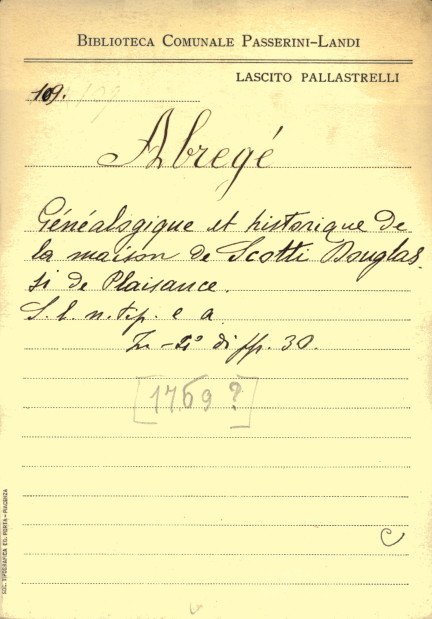 BIBLIOTECA COMUNALE PASSERINI-LANDI
LASCITO PALLASTRELLI
109.
Abregé
Généalogique et historique de
la maison de Scotti Douglas-
si de Plaisance.
S. l. n. tip. e a.
In-2° di pp. 30.
[1769?]
C
SOC. TIPOGRAFICA ED. PORTA - PIACENZA